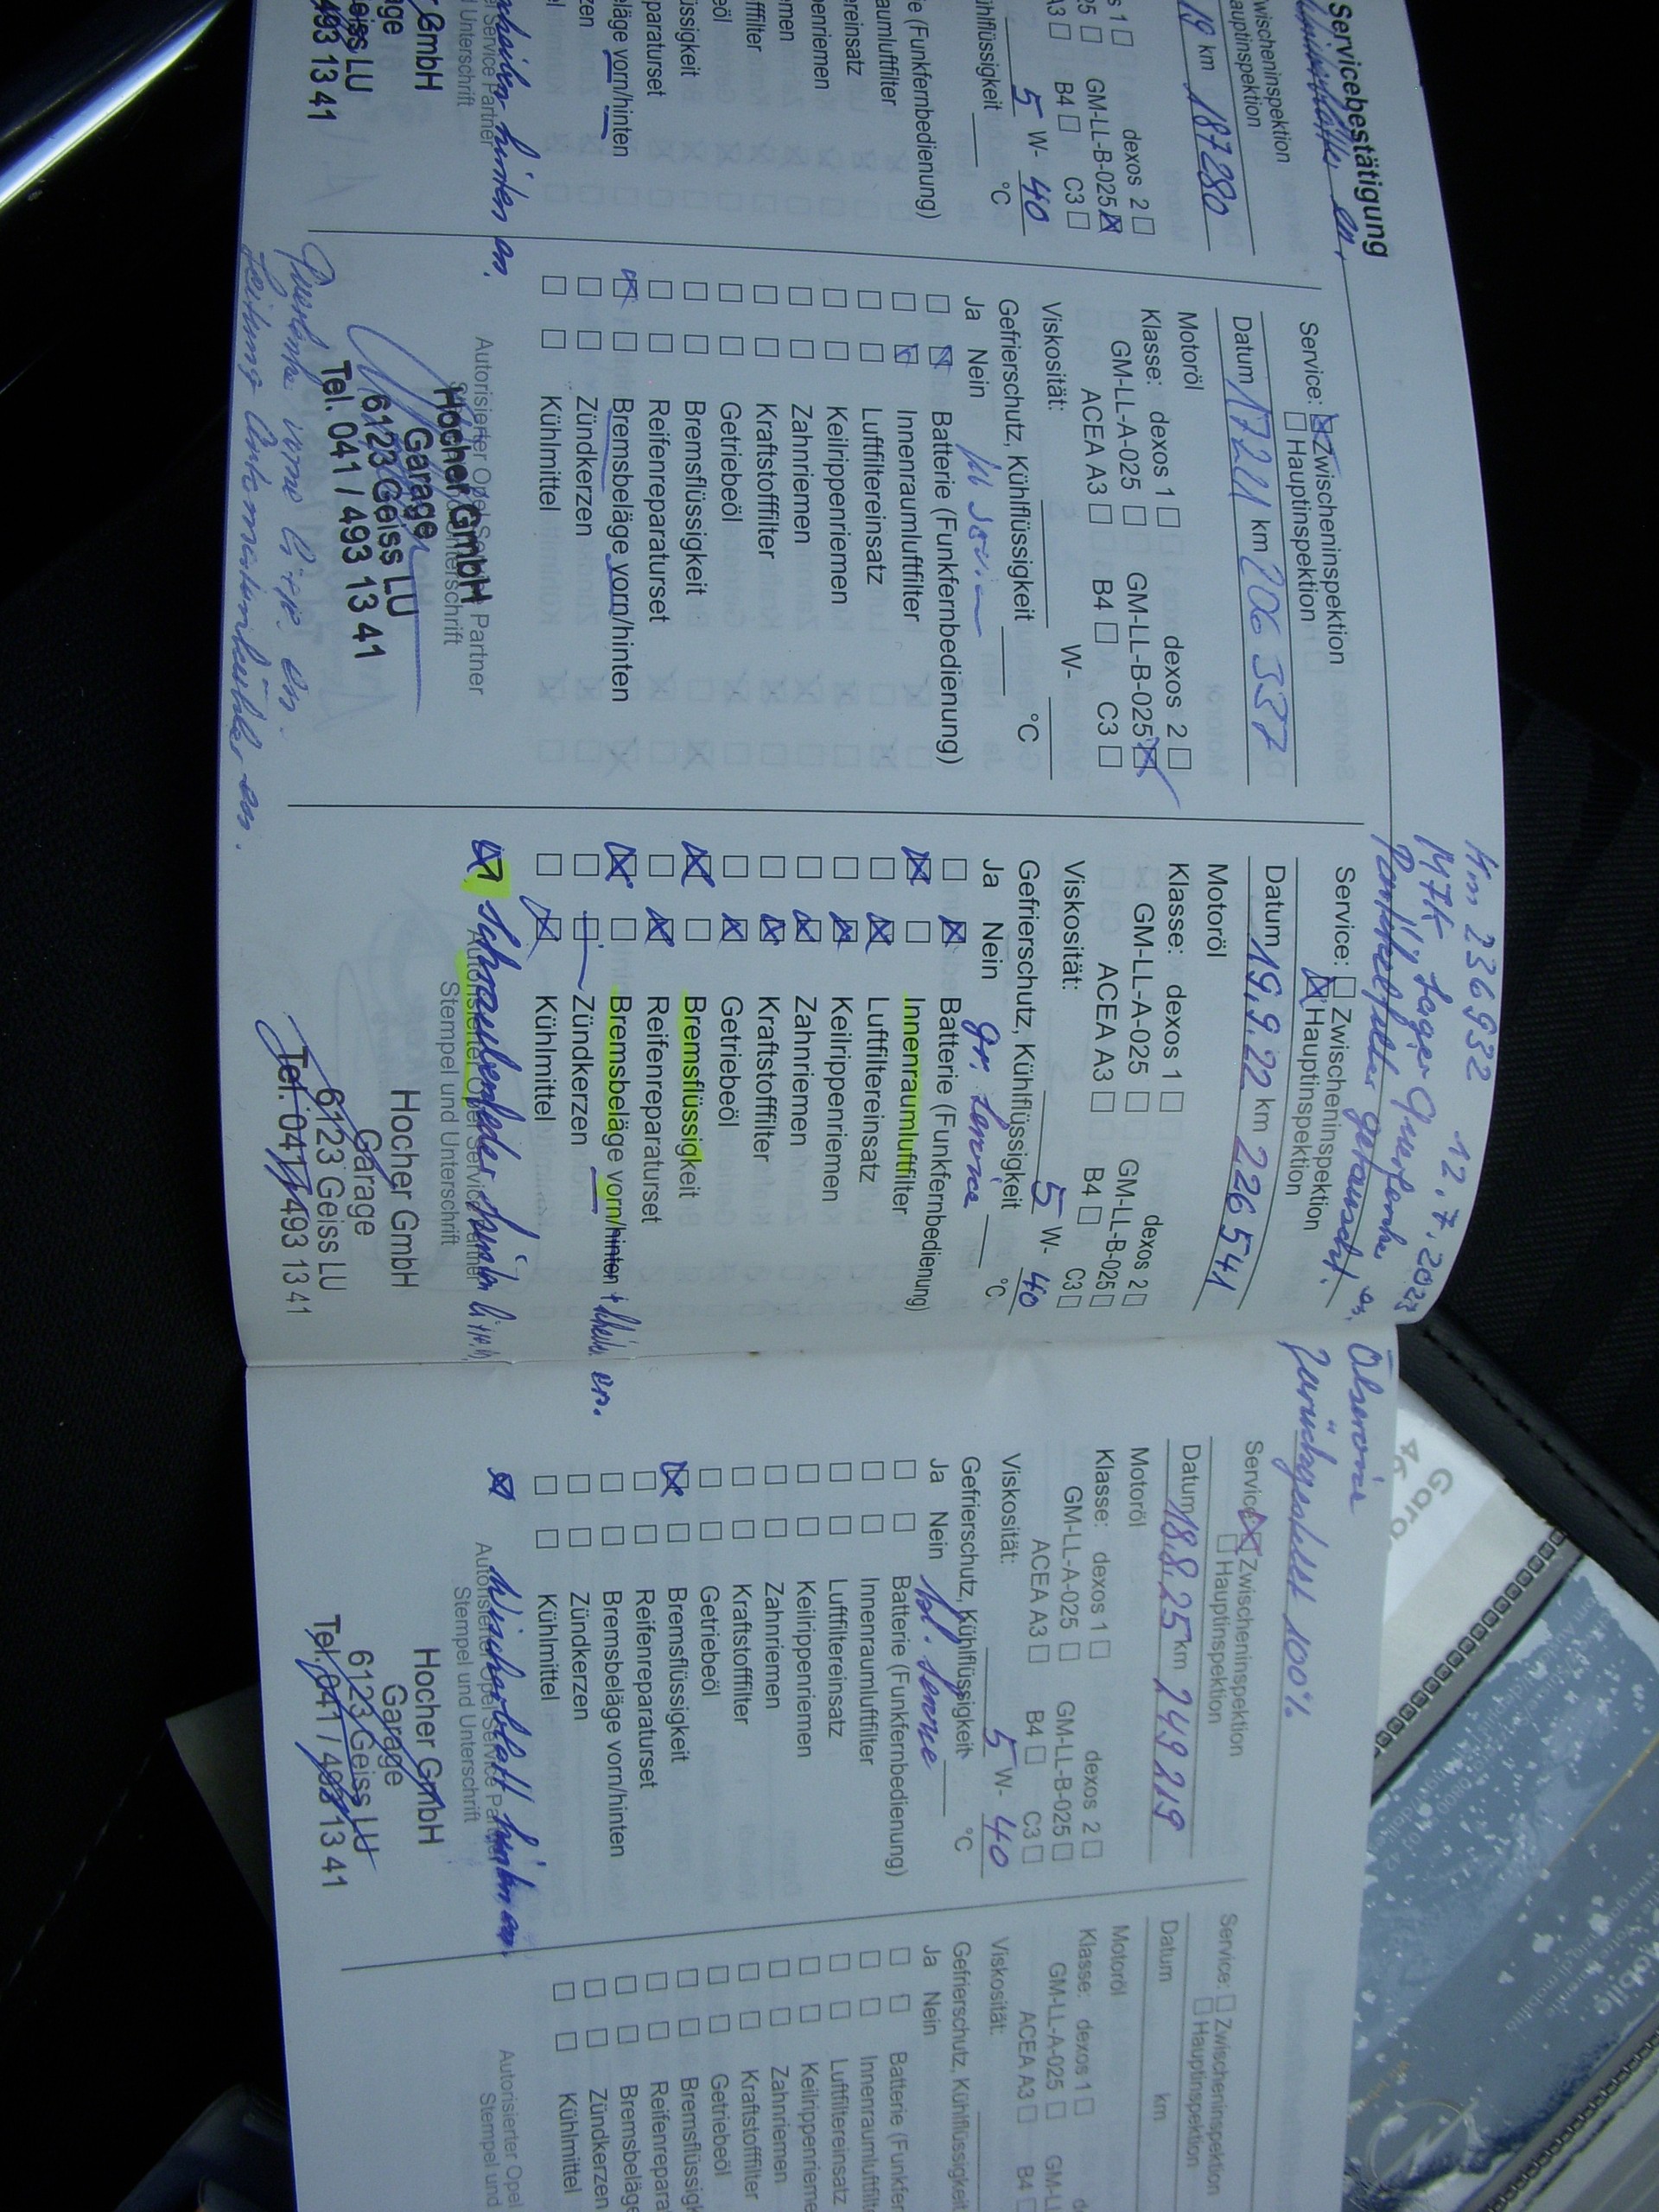 Servicebestätigung
wischeninspektion
auptinspektion
19 km 187280
dexos 2
s 1
GM-LL-B-025
A3 B4 C3
5 W- 40
ühlflüssigkeit °C
e (Funkfernbedienung)
aumluftfilter
reinsatz
enriemen
men
fffilter
eöl
üssigkeit
paraturset
läge vorn/hinten
zen
l
hinten er.
r Service Partner
d Unterschrift
r GmbH
age
eiss LU
493 13 41
Service: Zwischeninspektion
Hauptinspektion
Datum 17 2 21 km 206 337
Motoröl
Klasse: dexos 1 dexos 2
GM-LL-A-025 GM-LL-B-025
ACEA A3 B4 C3
Viskosität: W-
Gefrierschutz, Kühlflüssigkeit °C
Ja Nein
Batterie (Funkfernbedienung)
Innenraumluftfilter
Luftfiltereinsatz
Keilrippenriemen
Zahnriemen
Kraftstofffilter
Getriebeöl
Bremsflüssigkeit
Reifenreparaturset
Bremsbeläge vorn/hinten
Zündkerzen
Kühlmittel
Autorisierter Opel Service Partner
Hocher GmbH
Garage
6123 Geiss LU
Tel. 041 / 493 13 41
Km 236932 12.7.2023
MFK Lager Querlenker er,
Pendelpfosten getauscht.
Service: Zwischeninspektion
Hauptinspektion
Datum 19.9.22 km 226541
Motoröl
Klasse: dexos 1 dexos 2
GM-LL-A-025 GM-LL-B-025
ACEA A3 B4 C3
Viskosität: 5 W- 40
Gefrierschutz, Kühlflüssigkeit °C
Ja Nein gr. Service
Batterie (Funkfernbedienung)
Innenraumluftfilter
Luftfiltereinsatz
Keilrippenriemen
Zahnriemen
Kraftstofffilter
Getriebeöl
Bremsflüssigkeit
Reifenreparaturset
Bremsbeläge vorn/hinten + Scheib. er.
Zündkerzen
Kühlmittel
Schraubenfeder hinten li
Autorisierter Opel Service Partner
Stempel und Unterschrift
Hocher GmbH
Garage
6123 Geiss LU
Tel. 041 / 493 13 41
Ölservice
zurückgestellt 100%
Service: Zwischeninspektion
Hauptinspektion
Datum 18.8.25 km 249219
Motoröl
Klasse: dexos 1 dexos 2
GM-LL-A-025 GM-LL-B-025
ACEA A3 B4 C3
Viskosität: 5 W- 40
Gefrierschutz, Kühlflüssigkeit °C
Ja Nein kl. Service
Batterie (Funkfernbedienung)
Innenraumluftfilter
Luftfiltereinsatz
Keilrippenriemen
Zahnriemen
Kraftstofffilter
Getriebeöl
Bremsflüssigkeit
Reifenreparaturset
Bremsbeläge vorn/hinten
Zündkerzen
Kühlmittel
Wischerblatt hinten er.
Autorisierter Opel Service Partner
Stempel und Unterschrift
Hocher GmbH
Garage
6123 Geiss LU
Tel. 041 / 493 13 41
Service: Zwischeninspektion
Hauptinspektion
Datum km
Motoröl
Klasse: dexos 1
GM-LL-A-025 GM-LL
ACEA A3 B4
Viskosität:
Gefrierschutz, Kühlflüssigkeit
Ja Nein
Batterie (Funkfer
Innenraumluftfilt
Luftfiltereinsatz
Keilrippenrieme
Zahnriemen
Kraftstofffilter
Getriebeöl
Bremsflüssigk
Reifenrepara
Bremsbeläge
Zündkerzen
Kühlmittel
Autorisierter Opel
Stempel und
Gara